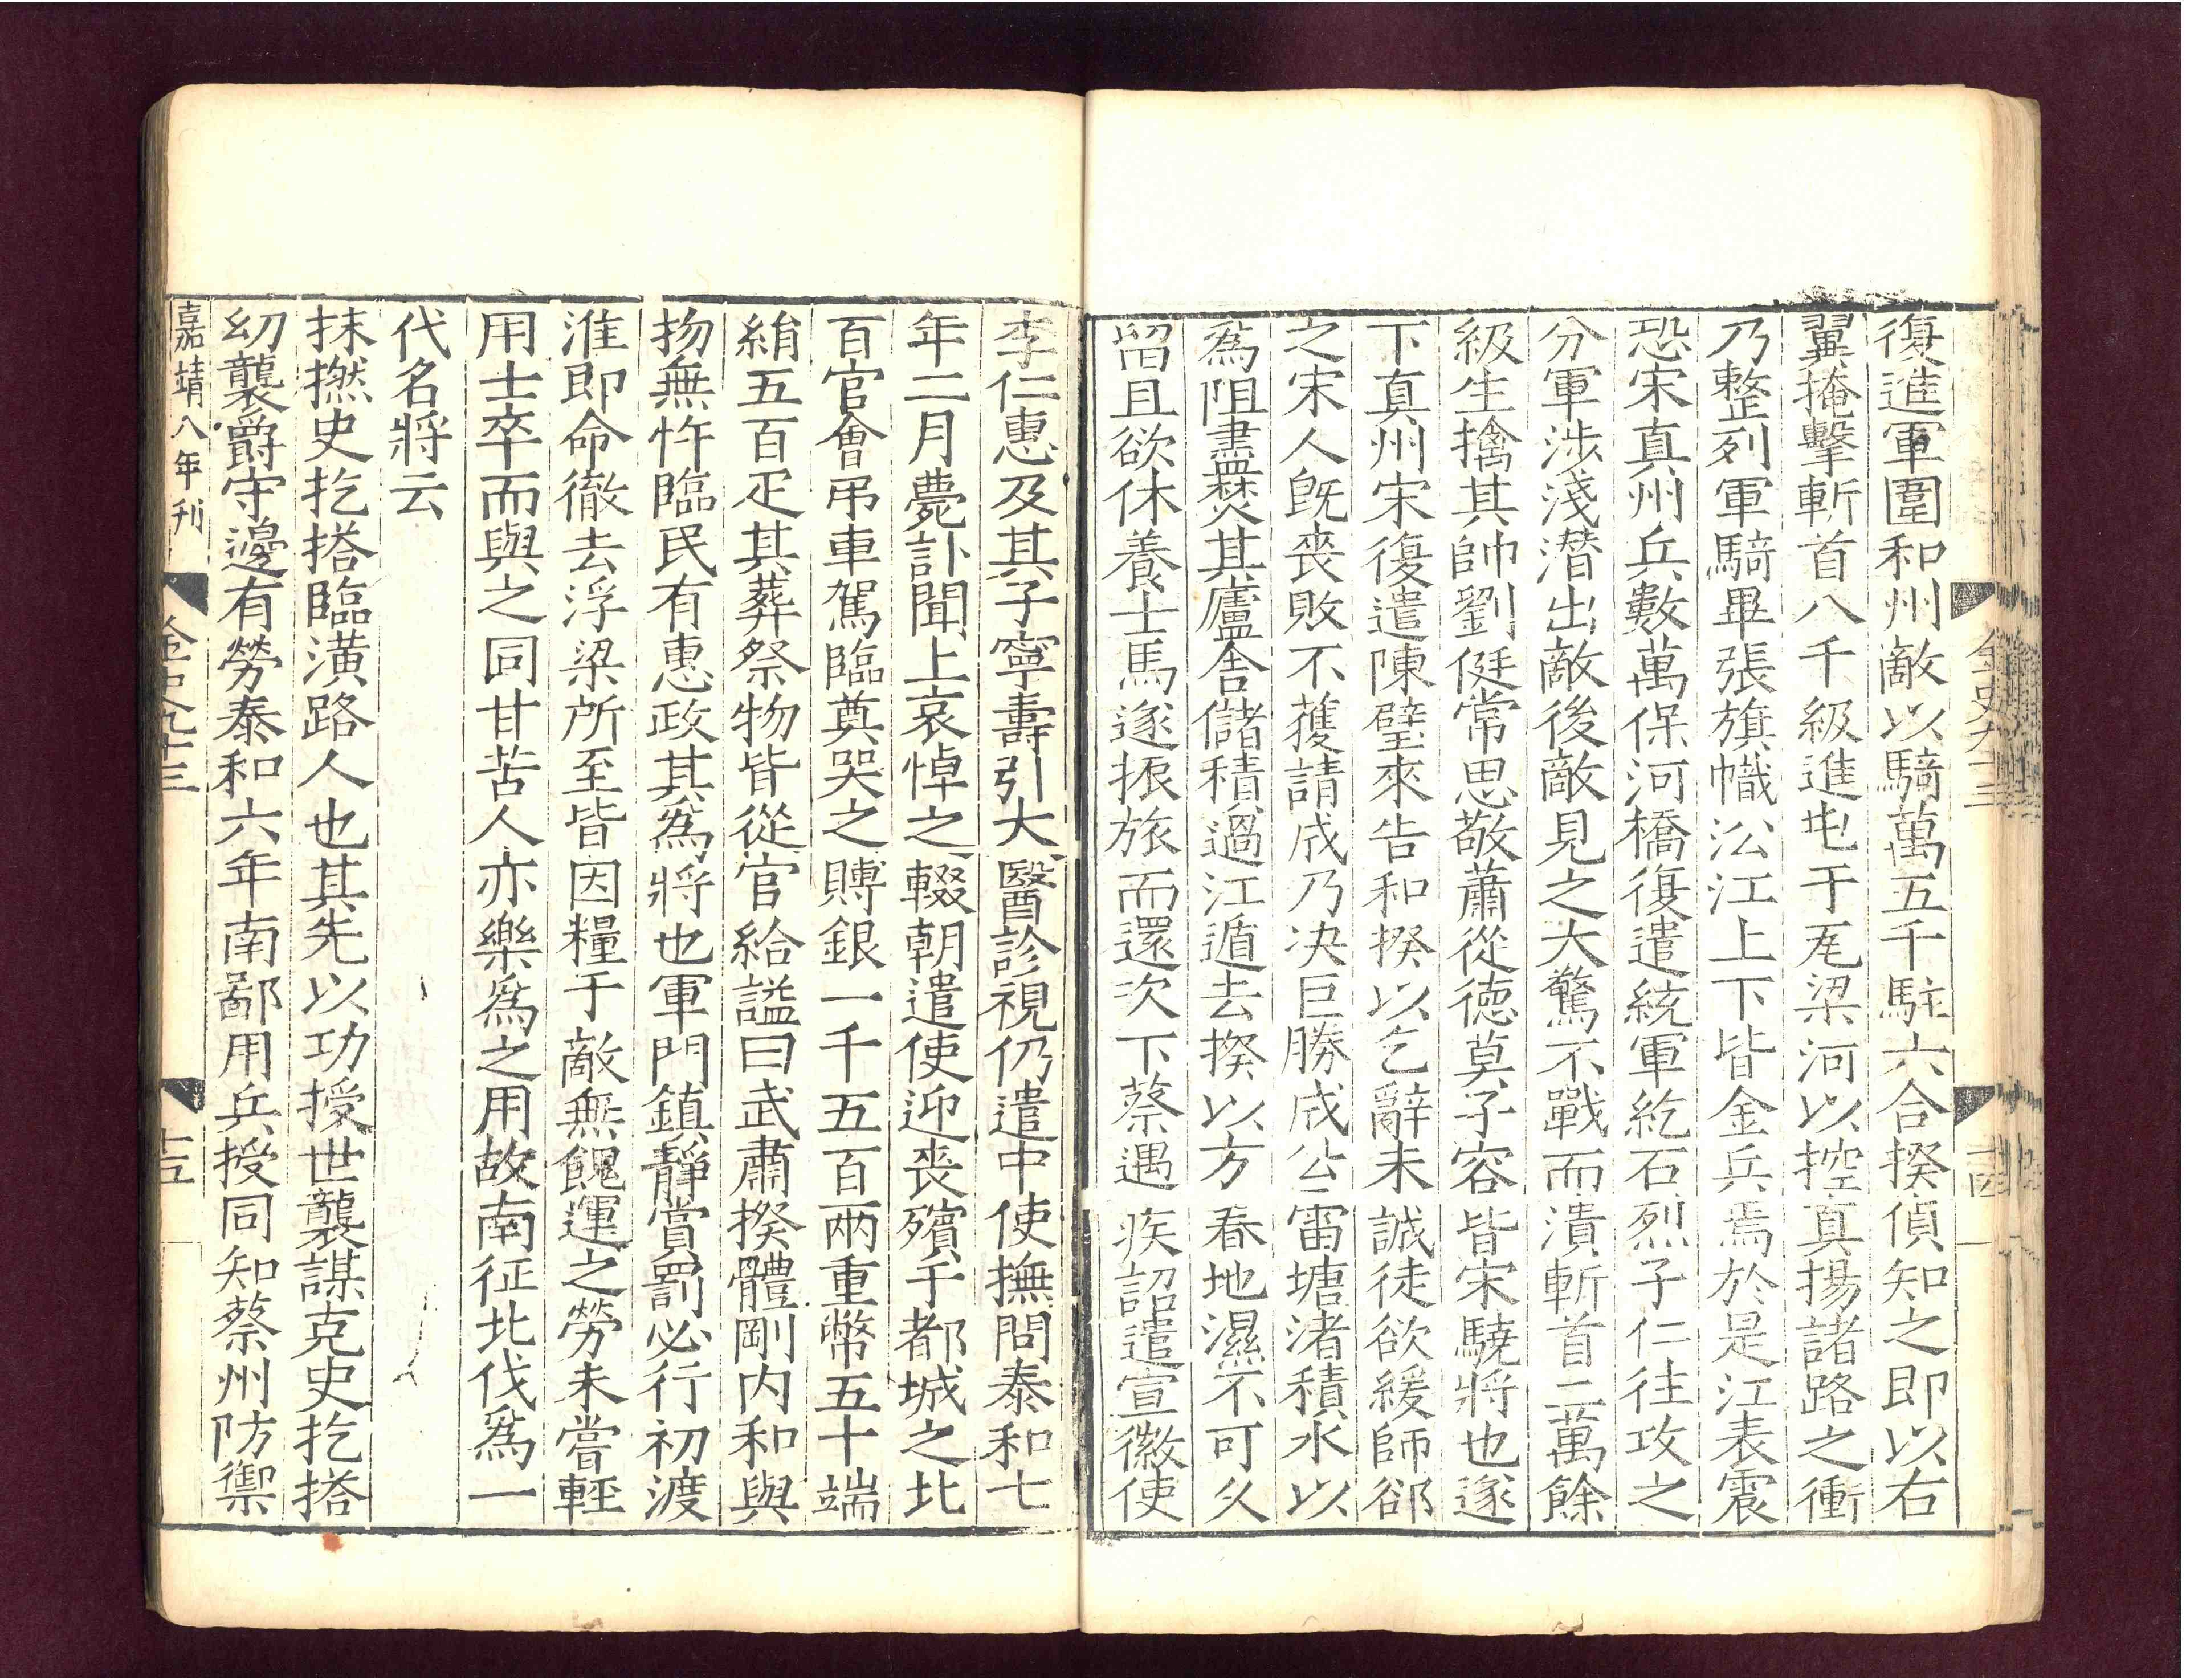 復進軍圍和州敵以騎萬五千駐六合揆偵知之即以右
翼掩擊斬首八千級進屯于瓦梁河以控真揚諸路之衝
乃整列軍騎畢張旗幟沿江上下皆金兵焉於是江表震
恐宋真州兵數萬保河橋復遣統軍紇石烈子仁往攻之
分軍涉淺潛出敵後敵見之大驚不戰而潰斬首二萬餘
級生擒其帥劉侹常思敬蕭從德莫子容皆宋驍將也遂
下真州宋復遣陳璧來告和揆以乞辭未誠徒欲緩師郤
之宋人既喪敗不獲請成乃决巨勝成公雷塘渚積水以
為阻盡焚其廬舍儲積過江遁去揆以方春地濕不可久
留且欲休養士馬遂振旅而還次下蔡遇疾詔遣宣徽使
金史九十三
十四
李仁惠及其子寧壽引大醫診視仍遣中使撫問泰和七
年二月薨訃聞上哀悼之輟朝遣使迎喪殯于都城之北
百官會弔車駕臨奠哭之賻銀一千五百兩重幣五十端
絹五百疋其葬祭物皆從官給謚曰武肅揆體剛内和與
物無忤臨民有惠政其爲將也軍門鎮靜賞罰必行初渡
淮即命徹去浮梁所至皆因糧于敵無餽運之勞未嘗輕
用士卒而與之同甘苦人亦樂爲之用故南征北伐爲一
代名將云
抹撚史扢搭臨潢路人也其先以功授世襲謀克史扢搭
幼襲爵守邊有勞泰和六年南鄙用兵授同知蔡州防禦
嘉靖八年刊
金史九十三
十五